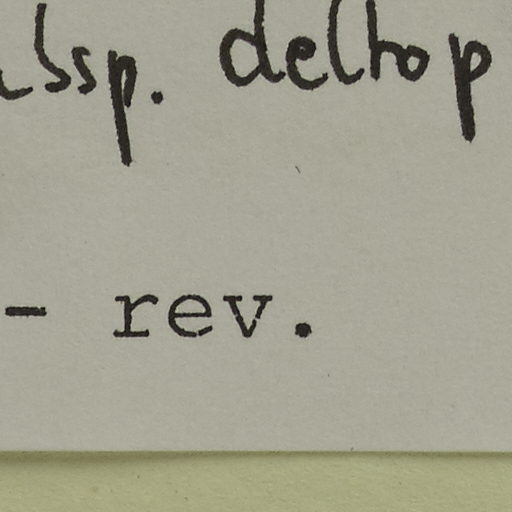 ubssp. deltop
- rev.